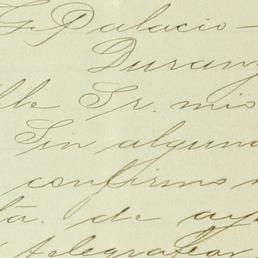 G. Palacio
Durang
ble Sr. mio
Sin alguna
confirmo
ta. de ay
telegrafiar